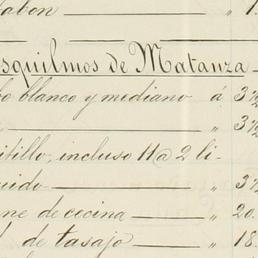 jabon — „ 1
squilmos de Matanza
bo blanco y mediano á 3½
— „ 3½
itillo, incluso 11 a 2 li-
uido — „ 3½
ne de cocina — „ 20.
de tasajo — „ 18.